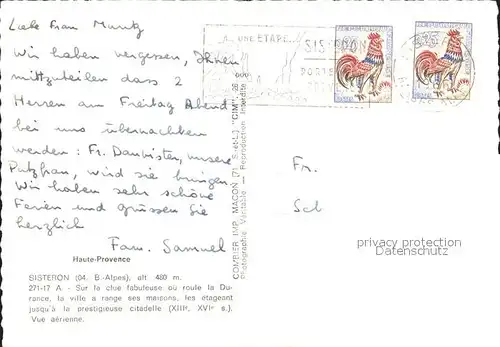 Liebe Frau Moritz
Wir haben vergessen, Ihnen
mitzuteilen dass 2
Herren am Freitag Abend
bei uns übernachten
werden: Fr. unsere
Putzfrau, wird sie bringen.
Wir haben sehr schöne
Ferien und grüssen Sie
herzlich
Fam. Samuel
Haute-Provence
SISTERON (04. B.-Alpes), alt. 480 m.
271-17 A - Sur la clue fabuleuse où route la Du-
rance, la ville a range ses maisons, les étageant
jusqu'à la prestigieuse citadelle (XIIIe, XVIe s.).
Vue aérienne.
COMBIER IMP. MACON (71. S.-&-L.) "CIM"
Photographie Véritable - Reproduction Interdite
UNE ETAPE...
SISTERON
Fr.
Sch
privacy protection
Datenschutz